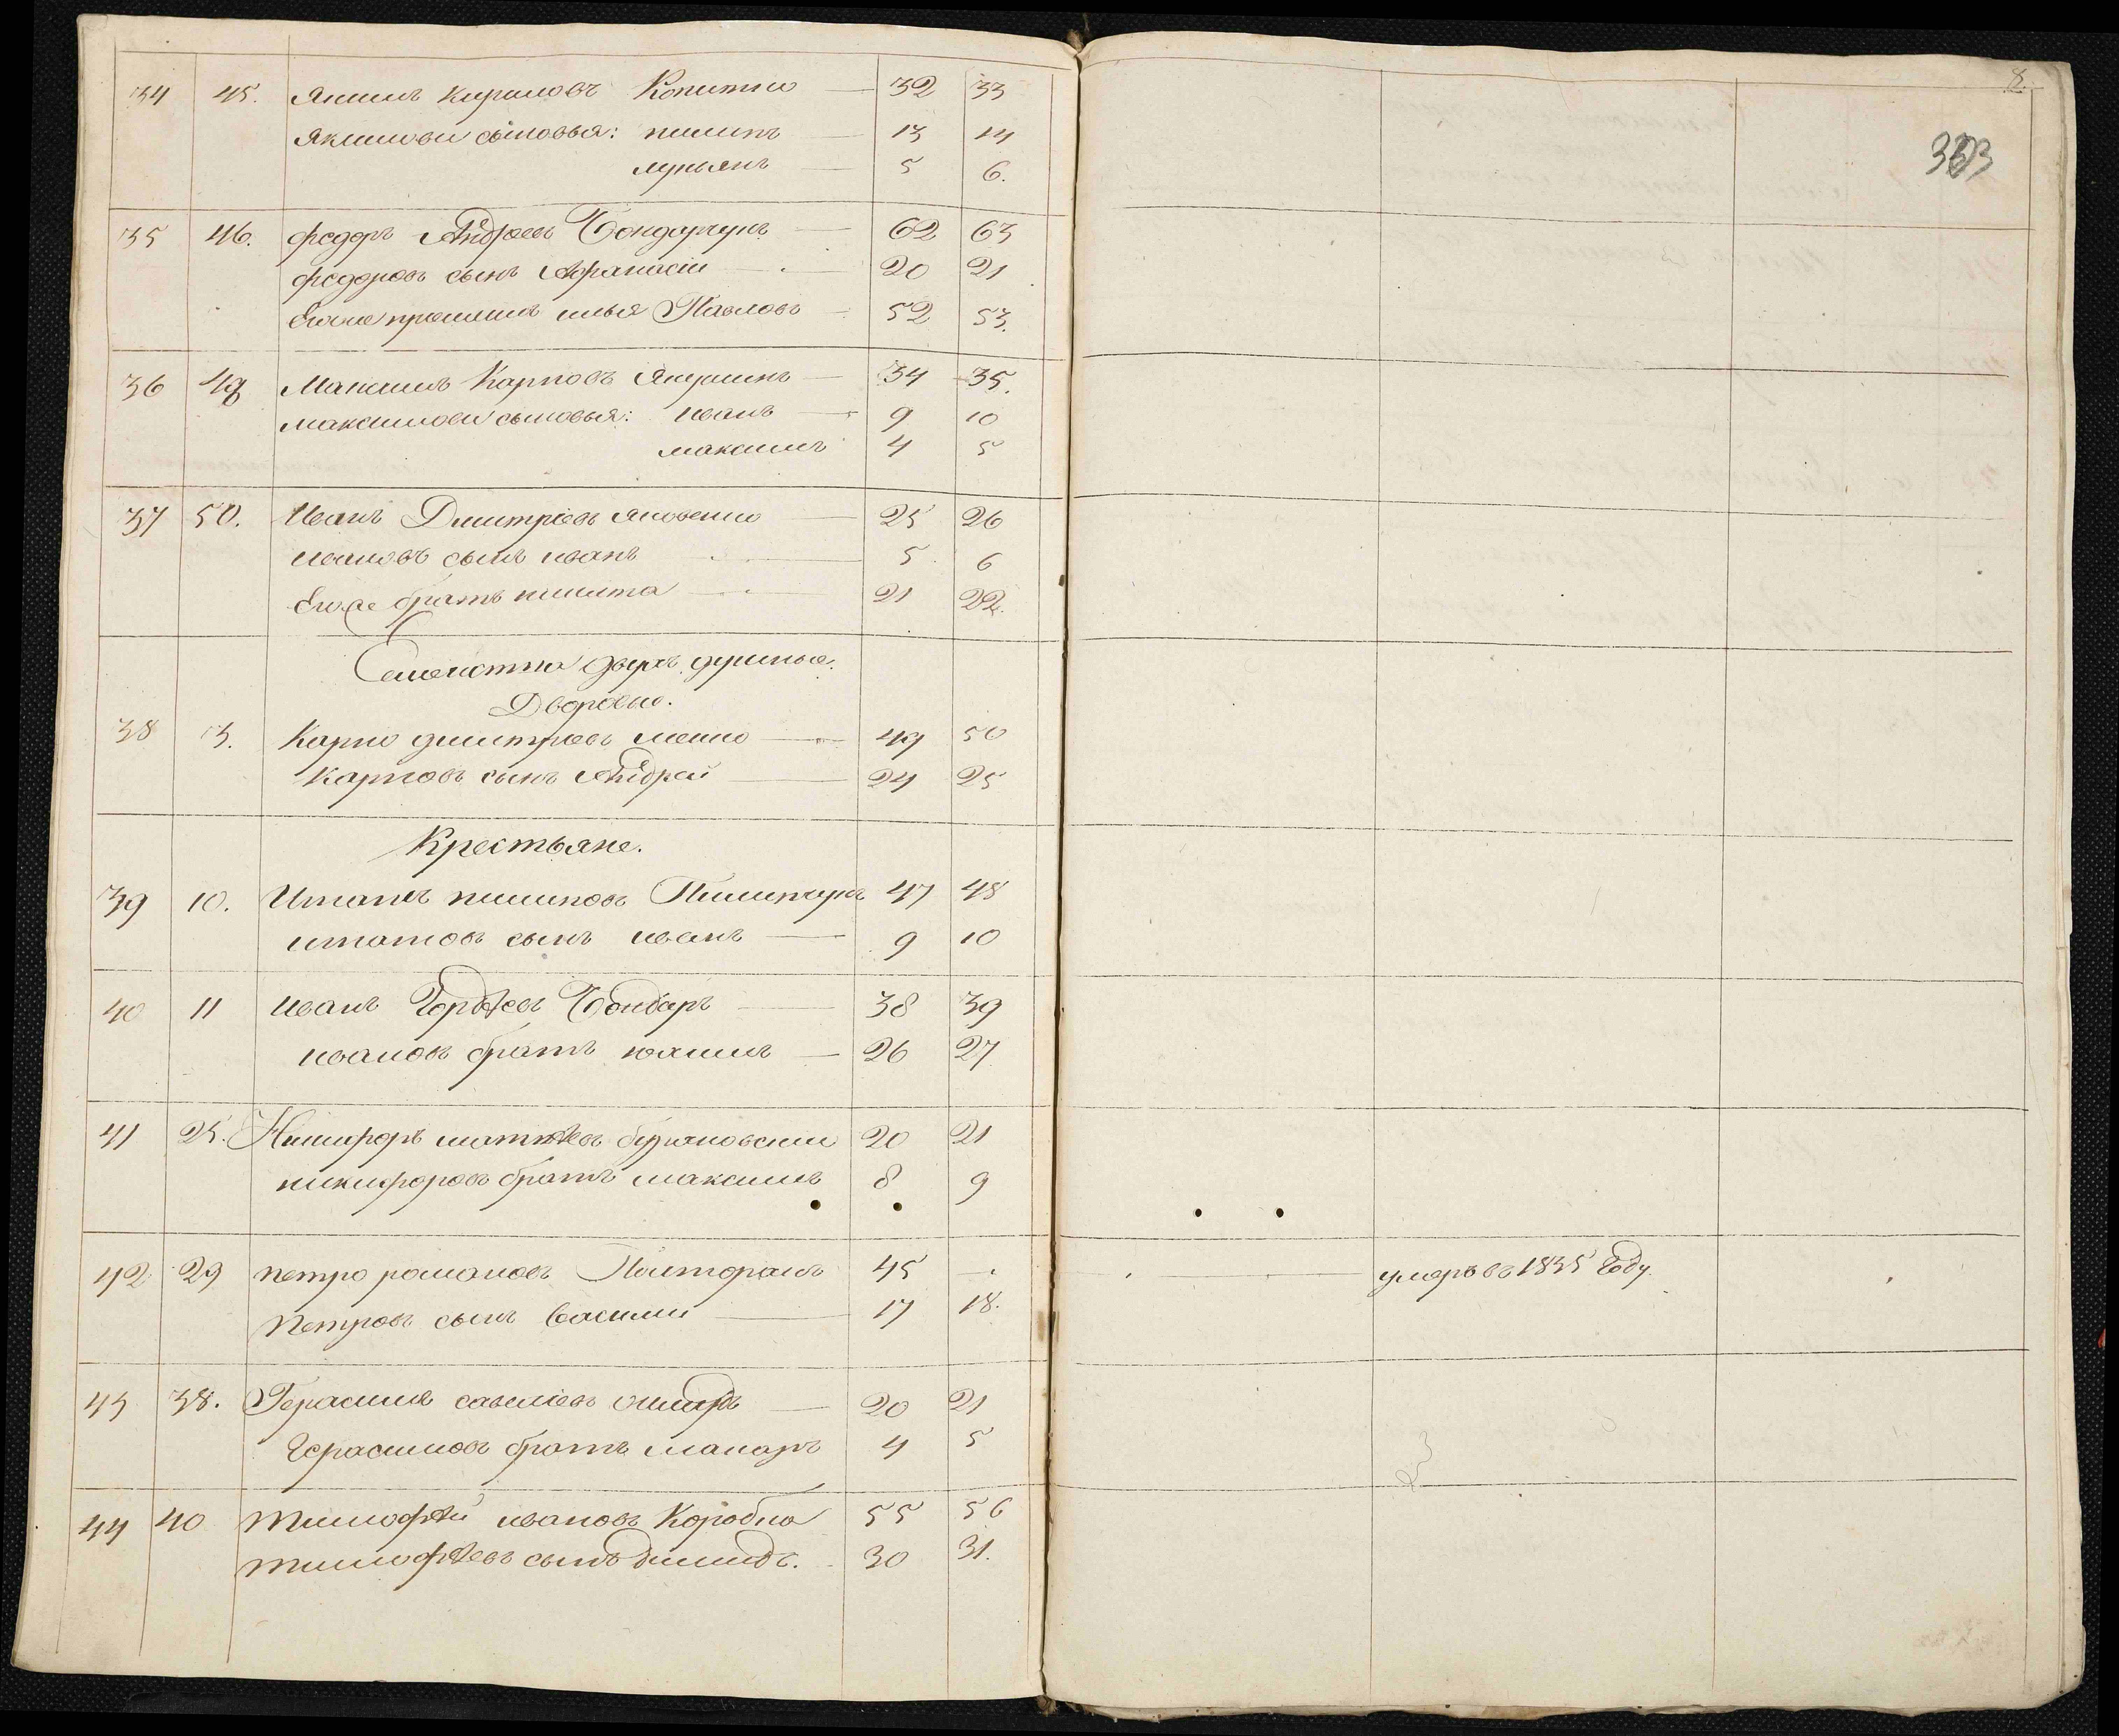 8.
34 45. Якимъ Кириловъ Копитко 32 33
Якимови сыновья: пилипъ 13 14
лукьянъ 5 6.
35 46. федоръ Андреевъ Бондарчукъ 62 63
федоровъ сынъ Афанасій 20 21
Егоже илья Павловъ 52 53.
36 48 Максимъ Карповъ 34 35.
максимови сыновья: иванъ 9 10
максимъ 4 5
37 50. Иванъ Дмитріевъ яковенко 25 26
ивановъ сынъ иванъ 5 6
Егоже братъ никита 21 22.
двухъ душные.
Дворовые.
38 3. Карпо дмитріевъ 49 50
Карповъ сынъ Андрей 24 25
Крестьяне.
39 10. Ипатъ пилиповъ Пилипчукъ 47 48
ипатовъ сынъ иванъ 9 10
40 11 иванъ Гордѣевъ Бондаръ 38 39
ивановъ братъ юхимъ 26 27
41 25. Никифоръ матвѣевъ 20 21
никифоровъ братъ максимъ 8 9
42 29 петро романовъ Полторакъ 45 — умеръ въ 1835 Году
петровъ сынъ василий 17 18.
43 38. Герасимъ савелієвъ 20 21
Герасимовъ братъ макаръ 4 5
44 40 тимофѣй ивановъ Коробка 55 56
тимофѣевъ сынъ демидъ. 30 31.